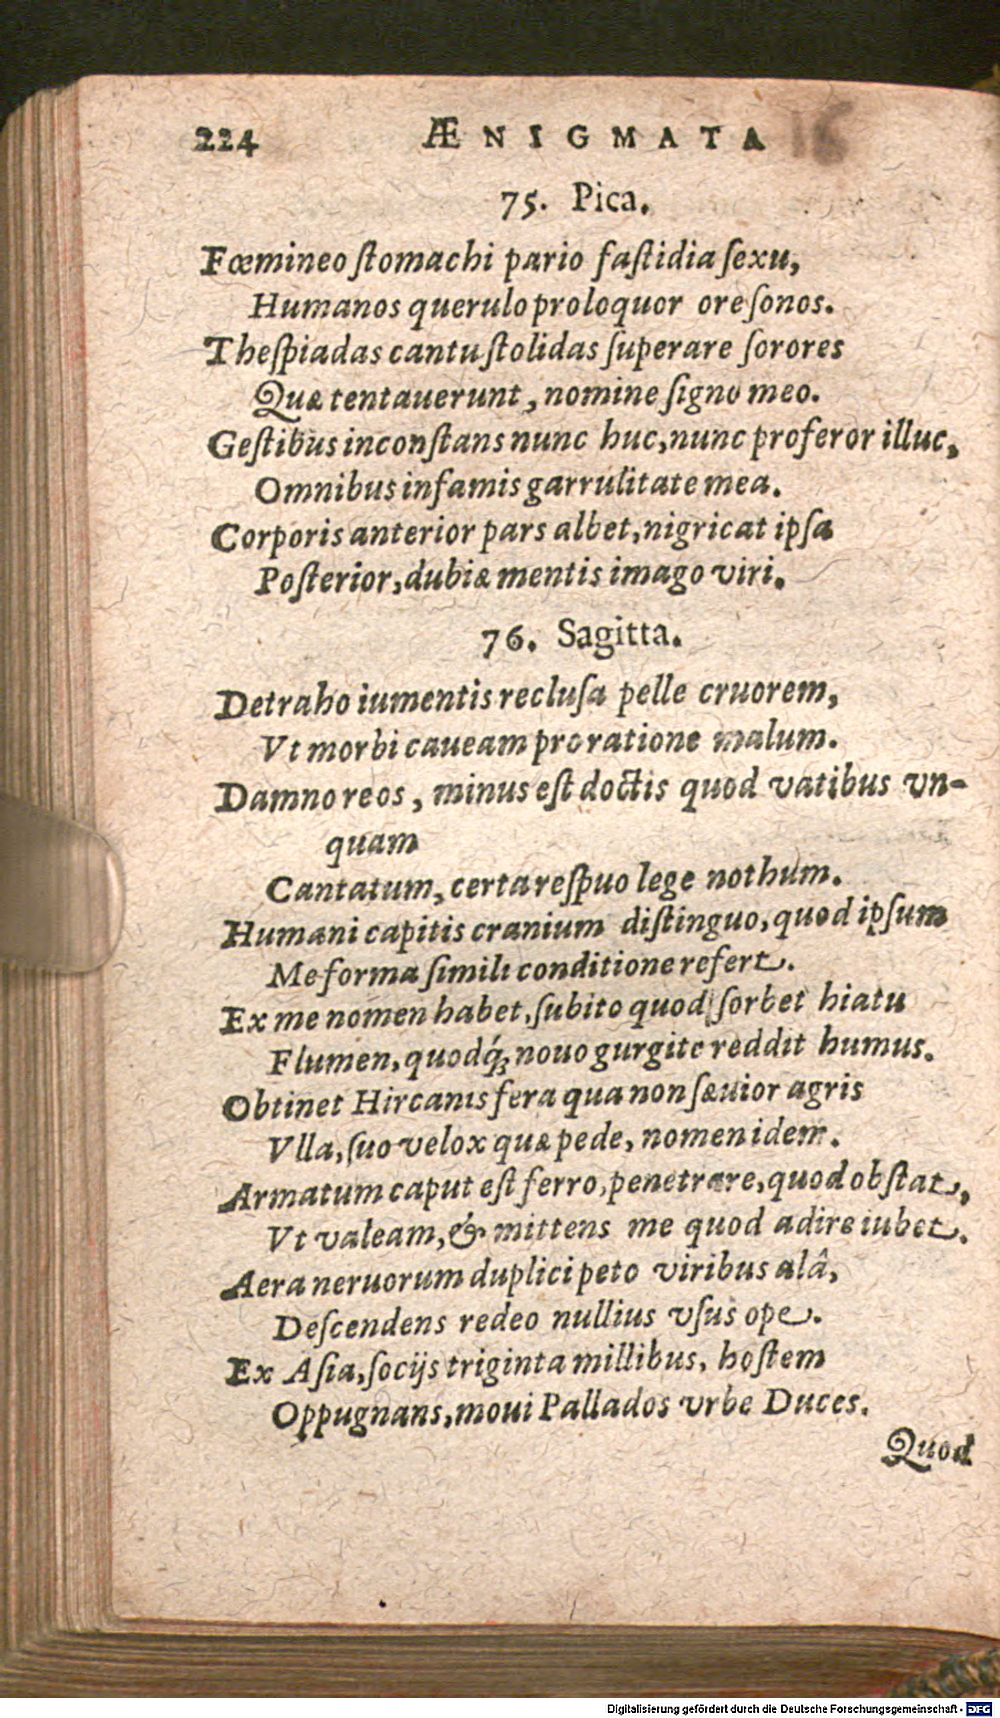 224 ÆNIGMATA 16
75. Pica.
Fœmineo ſtomachi pario faſtidia ſexu,
Humanos querulo proloquor ore ſonos.
Theſpiadas cantu ſtolidas ſuperare ſorores
Quæ tentauerunt, nomine ſigno meo.
Geſtibus inconſtans nunc huc, nunc proferor illuc,
Omnibus infamis garrulitate mea.
Corporis anterior pars albet, nigricat ipſa
Poſterior, dubiæ mentis imago viri.
76. Sagitta.
Detraho iumentis recluſa pelle cruorem,
Vt morbi caueam pro ratione malum.
Damno reos, minus eſt doctis quod vatibus vn-
quam
Cantatum, certa reſpuo lege nothum.
Humani capitis cranium diſtinguo, quod ipſum
Me forma ſimili conditione refert.
Ex me nomen habet, ſubito quod ſorbet hiatu
Flumen, quodq́; nouo gurgite reddit humus.
Obtinet Hircanis fera qua non ſæuior agris
Vlla, ſuo velox quæ pede, nomen idem.
Armatum caput eſt ferro, penetrare, quod obſtat,
Vt valeam, & mittens me quod adire iubet.
Aera neruorum duplici peto viribus alâ,
Deſcendens redeo nullius vſus ope.
Ex Aſia, ſocijs triginta millibus, hoſtem
Oppugnans, moui Pallados vrbe Duces.
Quod
Digitalisierung gefördert durch die Deutsche Forschungsgemeinschaft - DFG